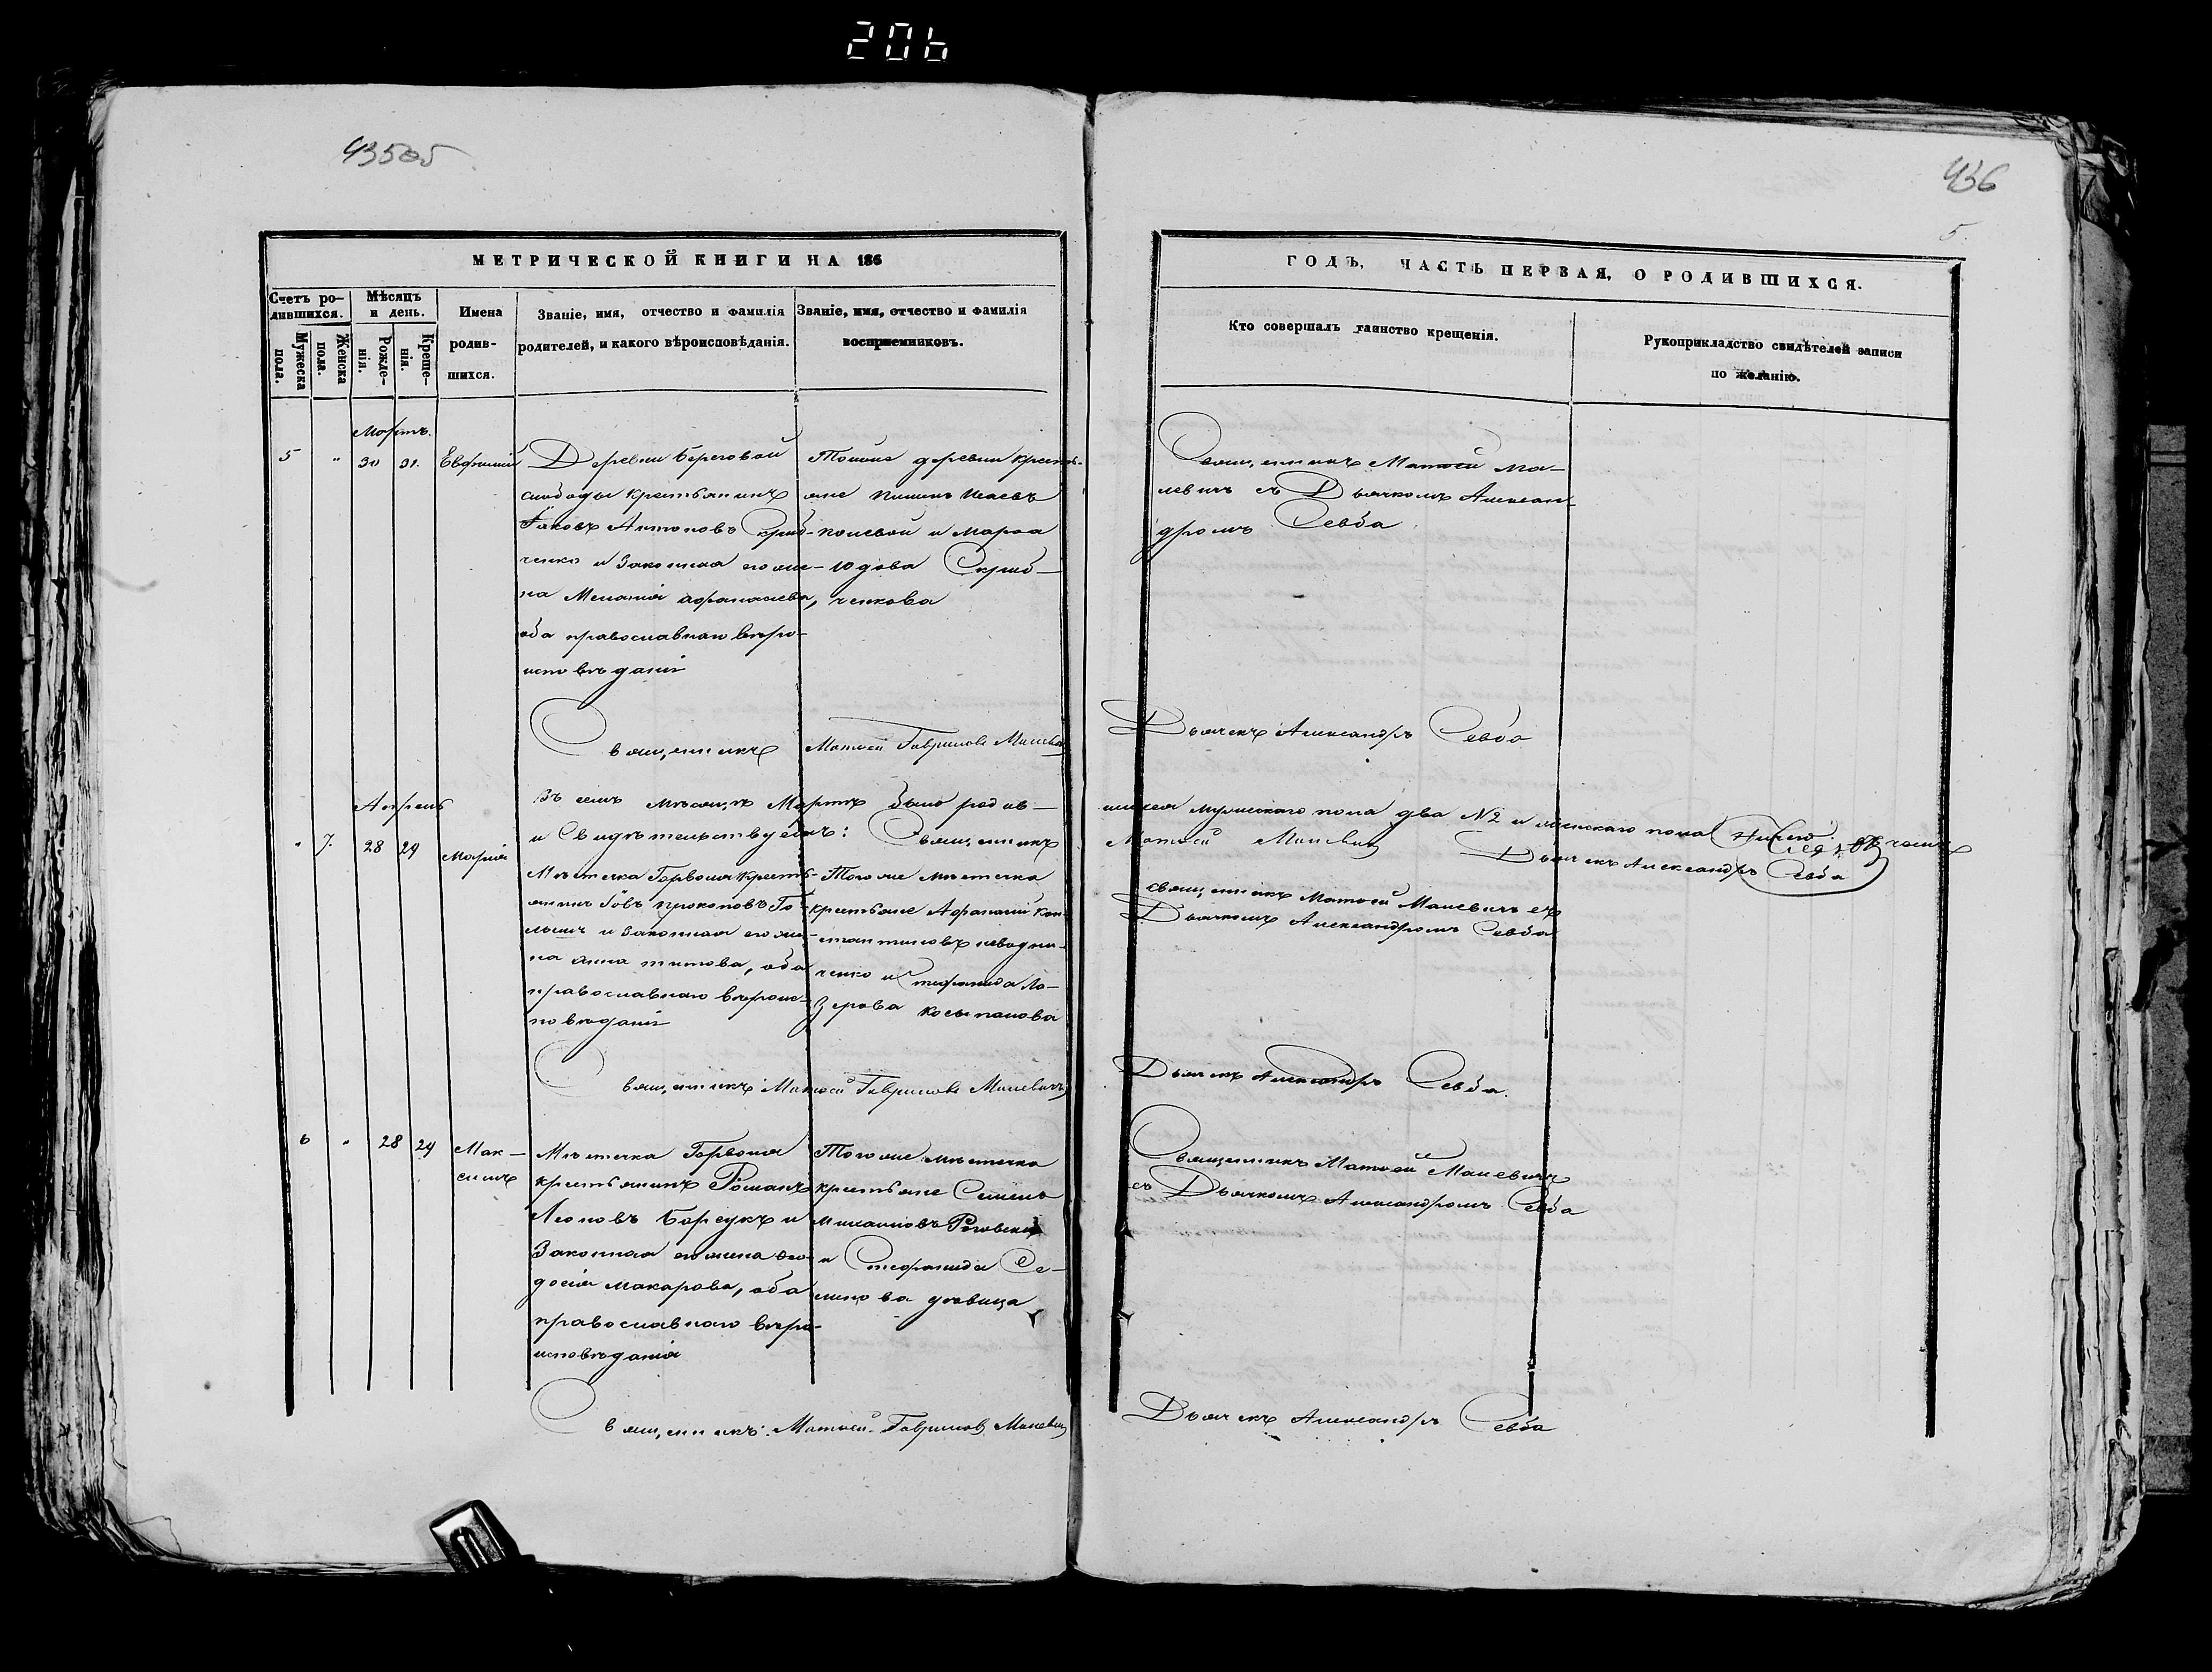 206
435об
436
5.
МЕТРИЧЕСКОЙ КНИГИ НА 186
ГОДЪ, ЧАСТЬ ПЕРВАЯ, О РОДИВШИХСЯ.
Счетъ ро-
дившихся.
Мужеска
пола.
Женска
пола.
Мѣсяцъ
и день.
Рожде-
нія.
Креще-
нія.
Имена
родив-
шихся.
Званіе, имя, отчество и фамилія
родителей, и какого вѣроисповѣданія.
Званіе, имя, отчество и фамилія
воспріемниковъ.
Кто совершалъ таинство крещенія.
Рукоприкладство свидѣтелей записи
по желанію.
Мартъ.
5 " 30 31. Евфимій
Деревни Береговой
слободы крестьянинъ
Іаковъ Антоновъ Скриб-
ченко и законная его же-
на Меланія Афанасіева,
оба православнаго вѣро-
исповѣданія
Тойже деревни кресть-
яне Исаевъ
и Марѳа
Скриб-
ченкова
Священникъ Матѳей Ма-
левичъ съ Дьячкомъ Алексан-
дромъ Севба
Священникъ Матѳей Гавриловъ Малевичъ
Дьячекъ Александръ Севба
Въ семъ мѣсяцѣ Мартѣ было родив-
шихся мужескаго пола два №2 и женскаго пола
и свидѣтельствуемъ: Священникъ
Матѳей Малевичъ
Дьячекъ Александръ Севба
Апрель
" 7. 28 29 Марія
Мѣстечка Горволя кресть-
янинъ Іовъ Прокоповъ Го-
и законная его же-
на Анна Титова, оба
православнаго вѣроис-
повѣданія
Тогоже мѣстечка
крестьяне Афанасій Кон-
стантиновъ
ченко и Стефанида Ла-
зерова
Священникъ Матѳей Малевичъ съ
Дьячкомъ Александромъ Севба
Священникъ Матѳей Гавриловъ Малевичъ
Дьячекъ Александръ Севба.
6 " 28 29 Мак-
симъ
Мѣстечка Горволя
крестьянинъ Романъ
Леоновъ Барсукъ и
законная его жена Ѳео-
досія Макарова, оба
православнаго вѣро-
исповѣданія
Тогоже мѣстечка
крестьяне Семенъ
и Стефанида Се-
менова дѣвица
Священникъ Матѳей Малевичъ
съ Дьячкомъ Александромъ Севба
Священникъ: Матѳей Гавриловъ Малевичъ
Дьячекъ Александръ Севба